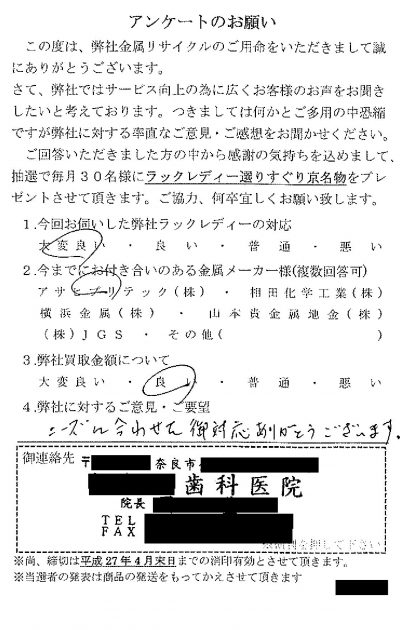 アンケートのお願い
この度は、弊社金属リサイクルのご用命をいただきまして誠
にありがとうございます。
さて、弊社ではサービス向上の為に広くお客様のお声をお聞き
したいと考えております。つきましては何かとご多用の中恐縮
ですが弊社に対する率直なご意見・ご感想をお聞かせください。
ご回答いただきました方の中から感謝の気持ちを込めまして、
抽選で毎月３０名様にラックレディー選りすぐり京名物をプレ
ゼントさせて頂きます。ご協力、何卒宜しくお願い致します。
1.今回お伺いした弊社ラックレディーの対応
大変良い・良い・普通・悪い
2.今までにお付き合いのある金属メーカー様(複数回答可)
アサヒプリテック(株)・相田化学工業(株)
横浜金属(株)・山本貴金属地金(株)
(株)JGS・その他( )
3.弊社買取金額について
大変良い・良い・普通・悪い
4.弊社に対するご意見・ご要望
ニーズに合わせた御対応ありがとうございます。
御連絡先 〒 奈良市
歯科医院
院長
TEL
FAX
を押して下さい
※尚、締切は平成27年4月末日までの消印有効とさせて頂きます。
※当選者の発表は商品の発送をもってかえさせて頂きます